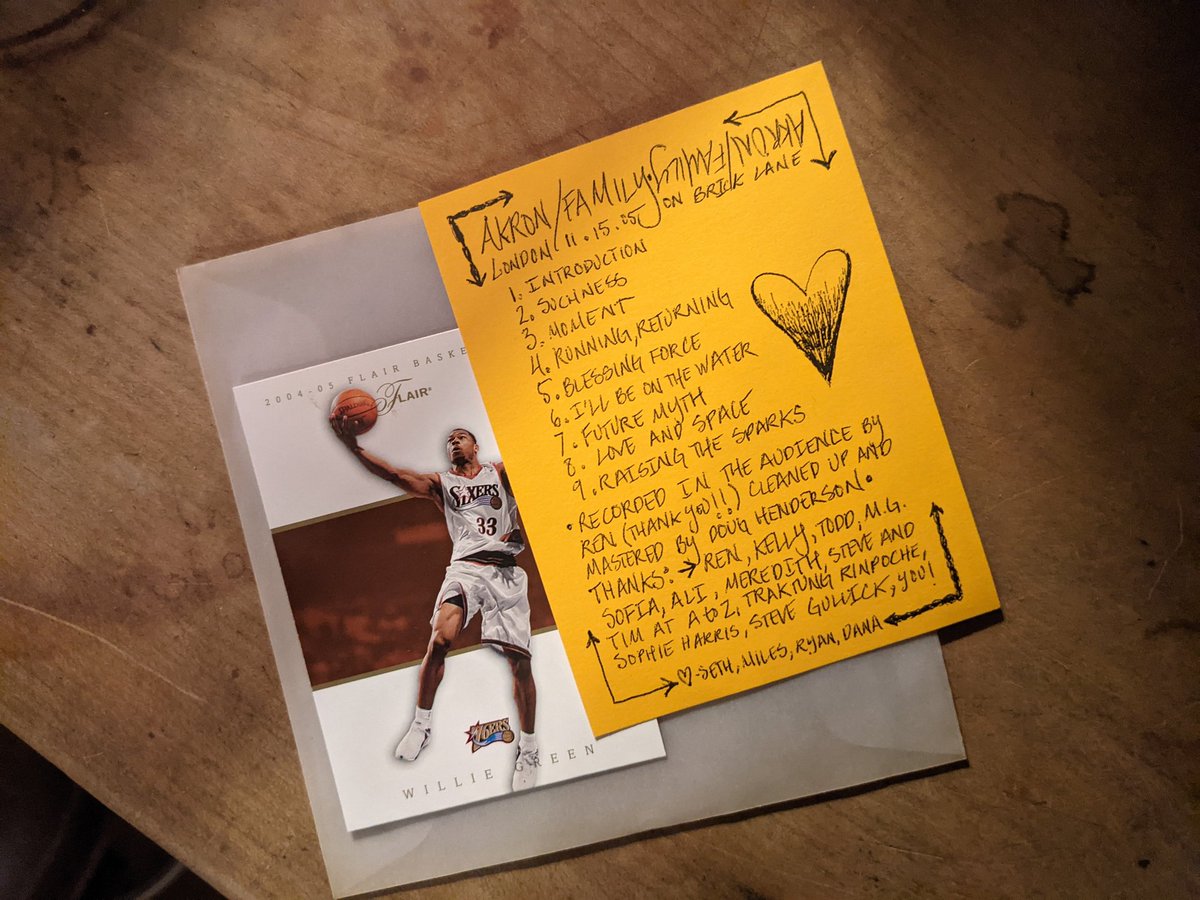 2004-05 FLAIR BASKE
FLAIR®
SPALDING
SIXERS
33
76ERS
WILLIE GREEN
AKRON/FAMILY
AKRON/FAMILY
LONDON 11.15.05 ON BRICK LANE
1. INTRODUCTION
2. SUCHNESS
3. MOMENT
4. RUNNING, RETURNING
5. BLESSING FORCE
6. I'LL BE ON THE WATER
7. FUTURE MYTH
8. LOVE AND SPACE
9. RAISING THE SPARKS
• RECORDED IN THE AUDIENCE BY
REN (THANK YOU!!) CLEANED UP AND
MASTERED BY DOUG HENDERSON •
THANKS: → REN, KELLY, TODD, M.G.
SOFIA, ALI, MEREDITH, STEVE AND
TIM AT A TO Z, TRAKTUNG RINPOCHE,
SOPHIE HARRIS, STEVE GULLICK, YOU!
♡-SETH, MILES, RYAN, DANA